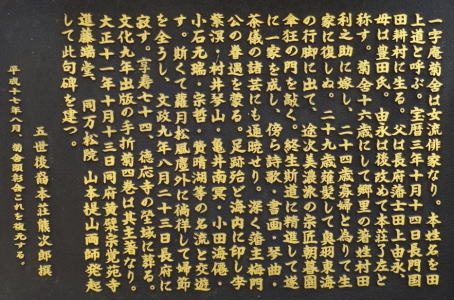 一字庵菊舎は女流俳家なり。本姓名を田
上道と呼ぶ。宝暦三年十月十四日長門国
田耕村に生る。父は長府藩士田上由永、
母は豊田氏。由永は後改めて本荘了左と
称す。菊舎十六歳にして郷里の著姓村田
利之助に嫁し、二十四歳寡婦と為りて生
家に復しぬ。二十九歳薙髪して奥羽東海
の行脚に出で、途次美濃派の宗匠朝暮園
傘狂の門を敲く。終生斯道に精進して遂
に一家を成し、傍ら詩歌・書画・琴曲・
茶儀の諸芸にも通暁せり。深く藩主梅門
公の眷遇を蒙る。足跡殆ど海内に印し拳
紫溟・村井琴山・亀井南冥・小田海僊・
小石元瑞・宗哲・賛晴湖等の名流と交遊
す。斯くて蘿月松風塵外に徜徉して婦節
を全うし、文政九年八月二十三日長府に
寂す。享寿七十四、徳応寺の塋域に葬る。
文化九年出版の手折菊四巻は其主著なり。
大正十一年十月十三日同府黄檗宗覚苑寺
進藤端堂、同万松院 山本提山両師発起
して此句碑を建つ。
五世後裔本荘熊次郎 撰
平成十七年八月、菊舎顕彰会これを復元する。